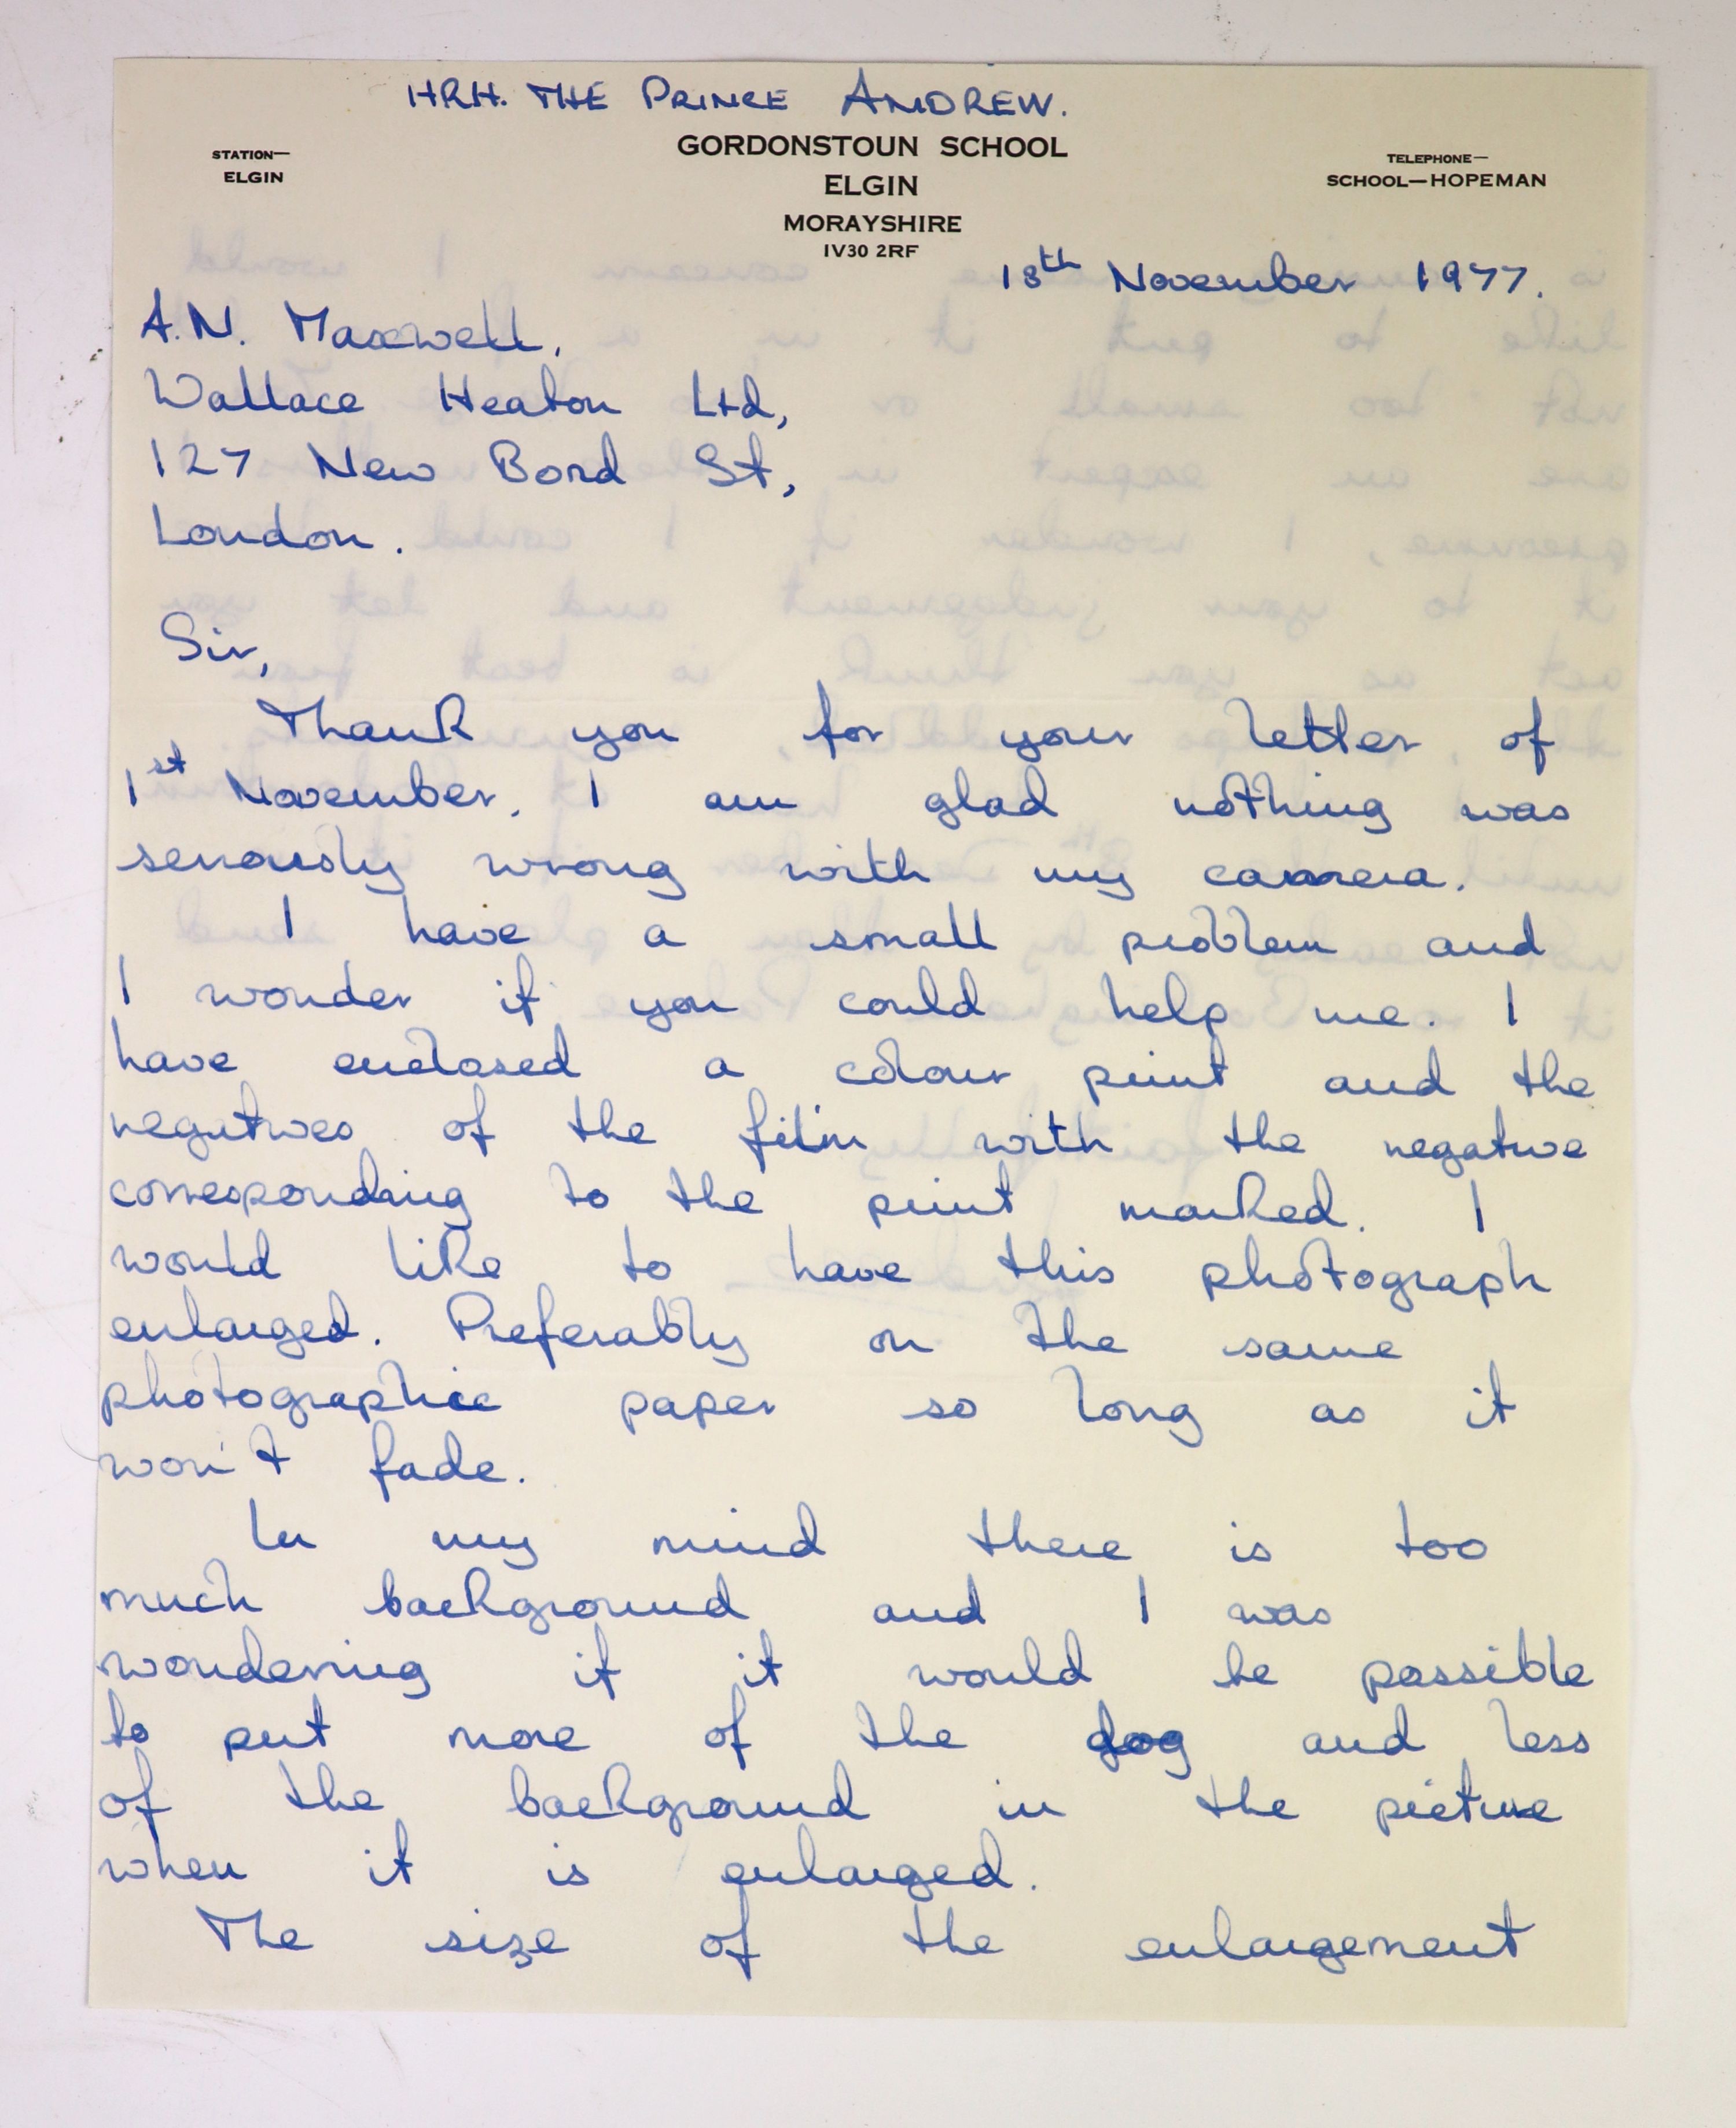 HRH. THE PRINCE ANDREW.
GORDONSTOUN SCHOOL
STATION—
ELGIN
ELGIN
TELEPHONE—
SCHOOL—HOPEMAN
MORAYSHIRE
IV30 2RF
13th November 1977.
A.N. Maxwell,
Wallace Heaton Ltd,
127 New Bond St,
London.
Sir,
Thank you for your letter of
1st November. I am glad nothing was
seriously wrong with my camera.
I have a small problem and
I wonder if you could help me. I
have enclosed a colour print and the
negatives of the film with the negative
corresponding to the print marked. I
would like to have this photograph
enlarged. Preferably on the same
photographic paper so long as it
won't fade.
In my mind there is too
much background and I was
wondering if it would be possible
to put more of the dog and less
of the background in the picture
when it is enlarged.
The size of the enlargement